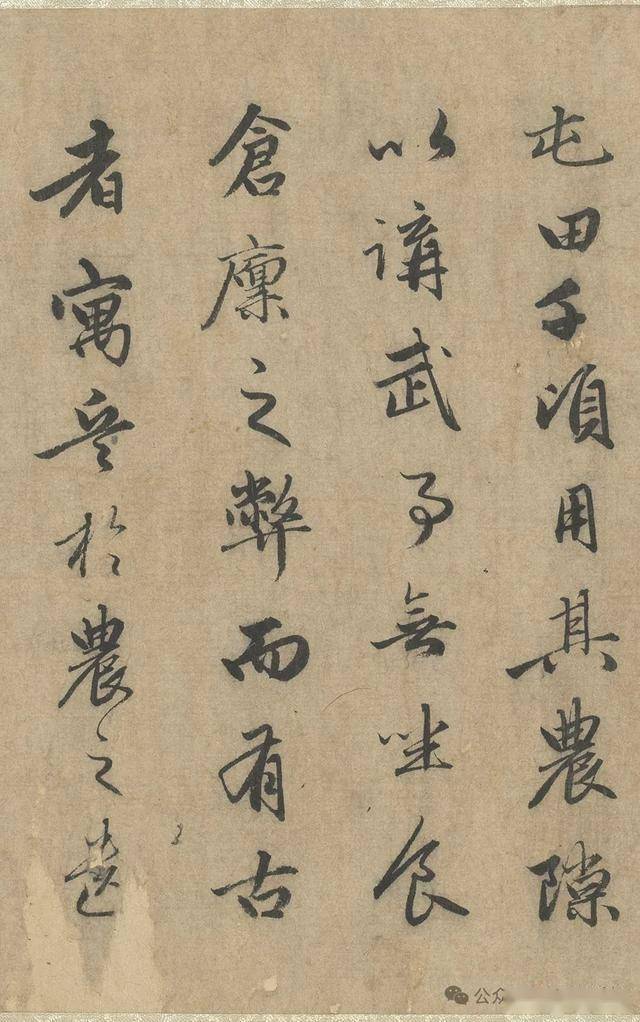 屯田千頃用其農隙
以講武事無坐食
倉廩之弊而有古
者寓兵於農之遺
公众